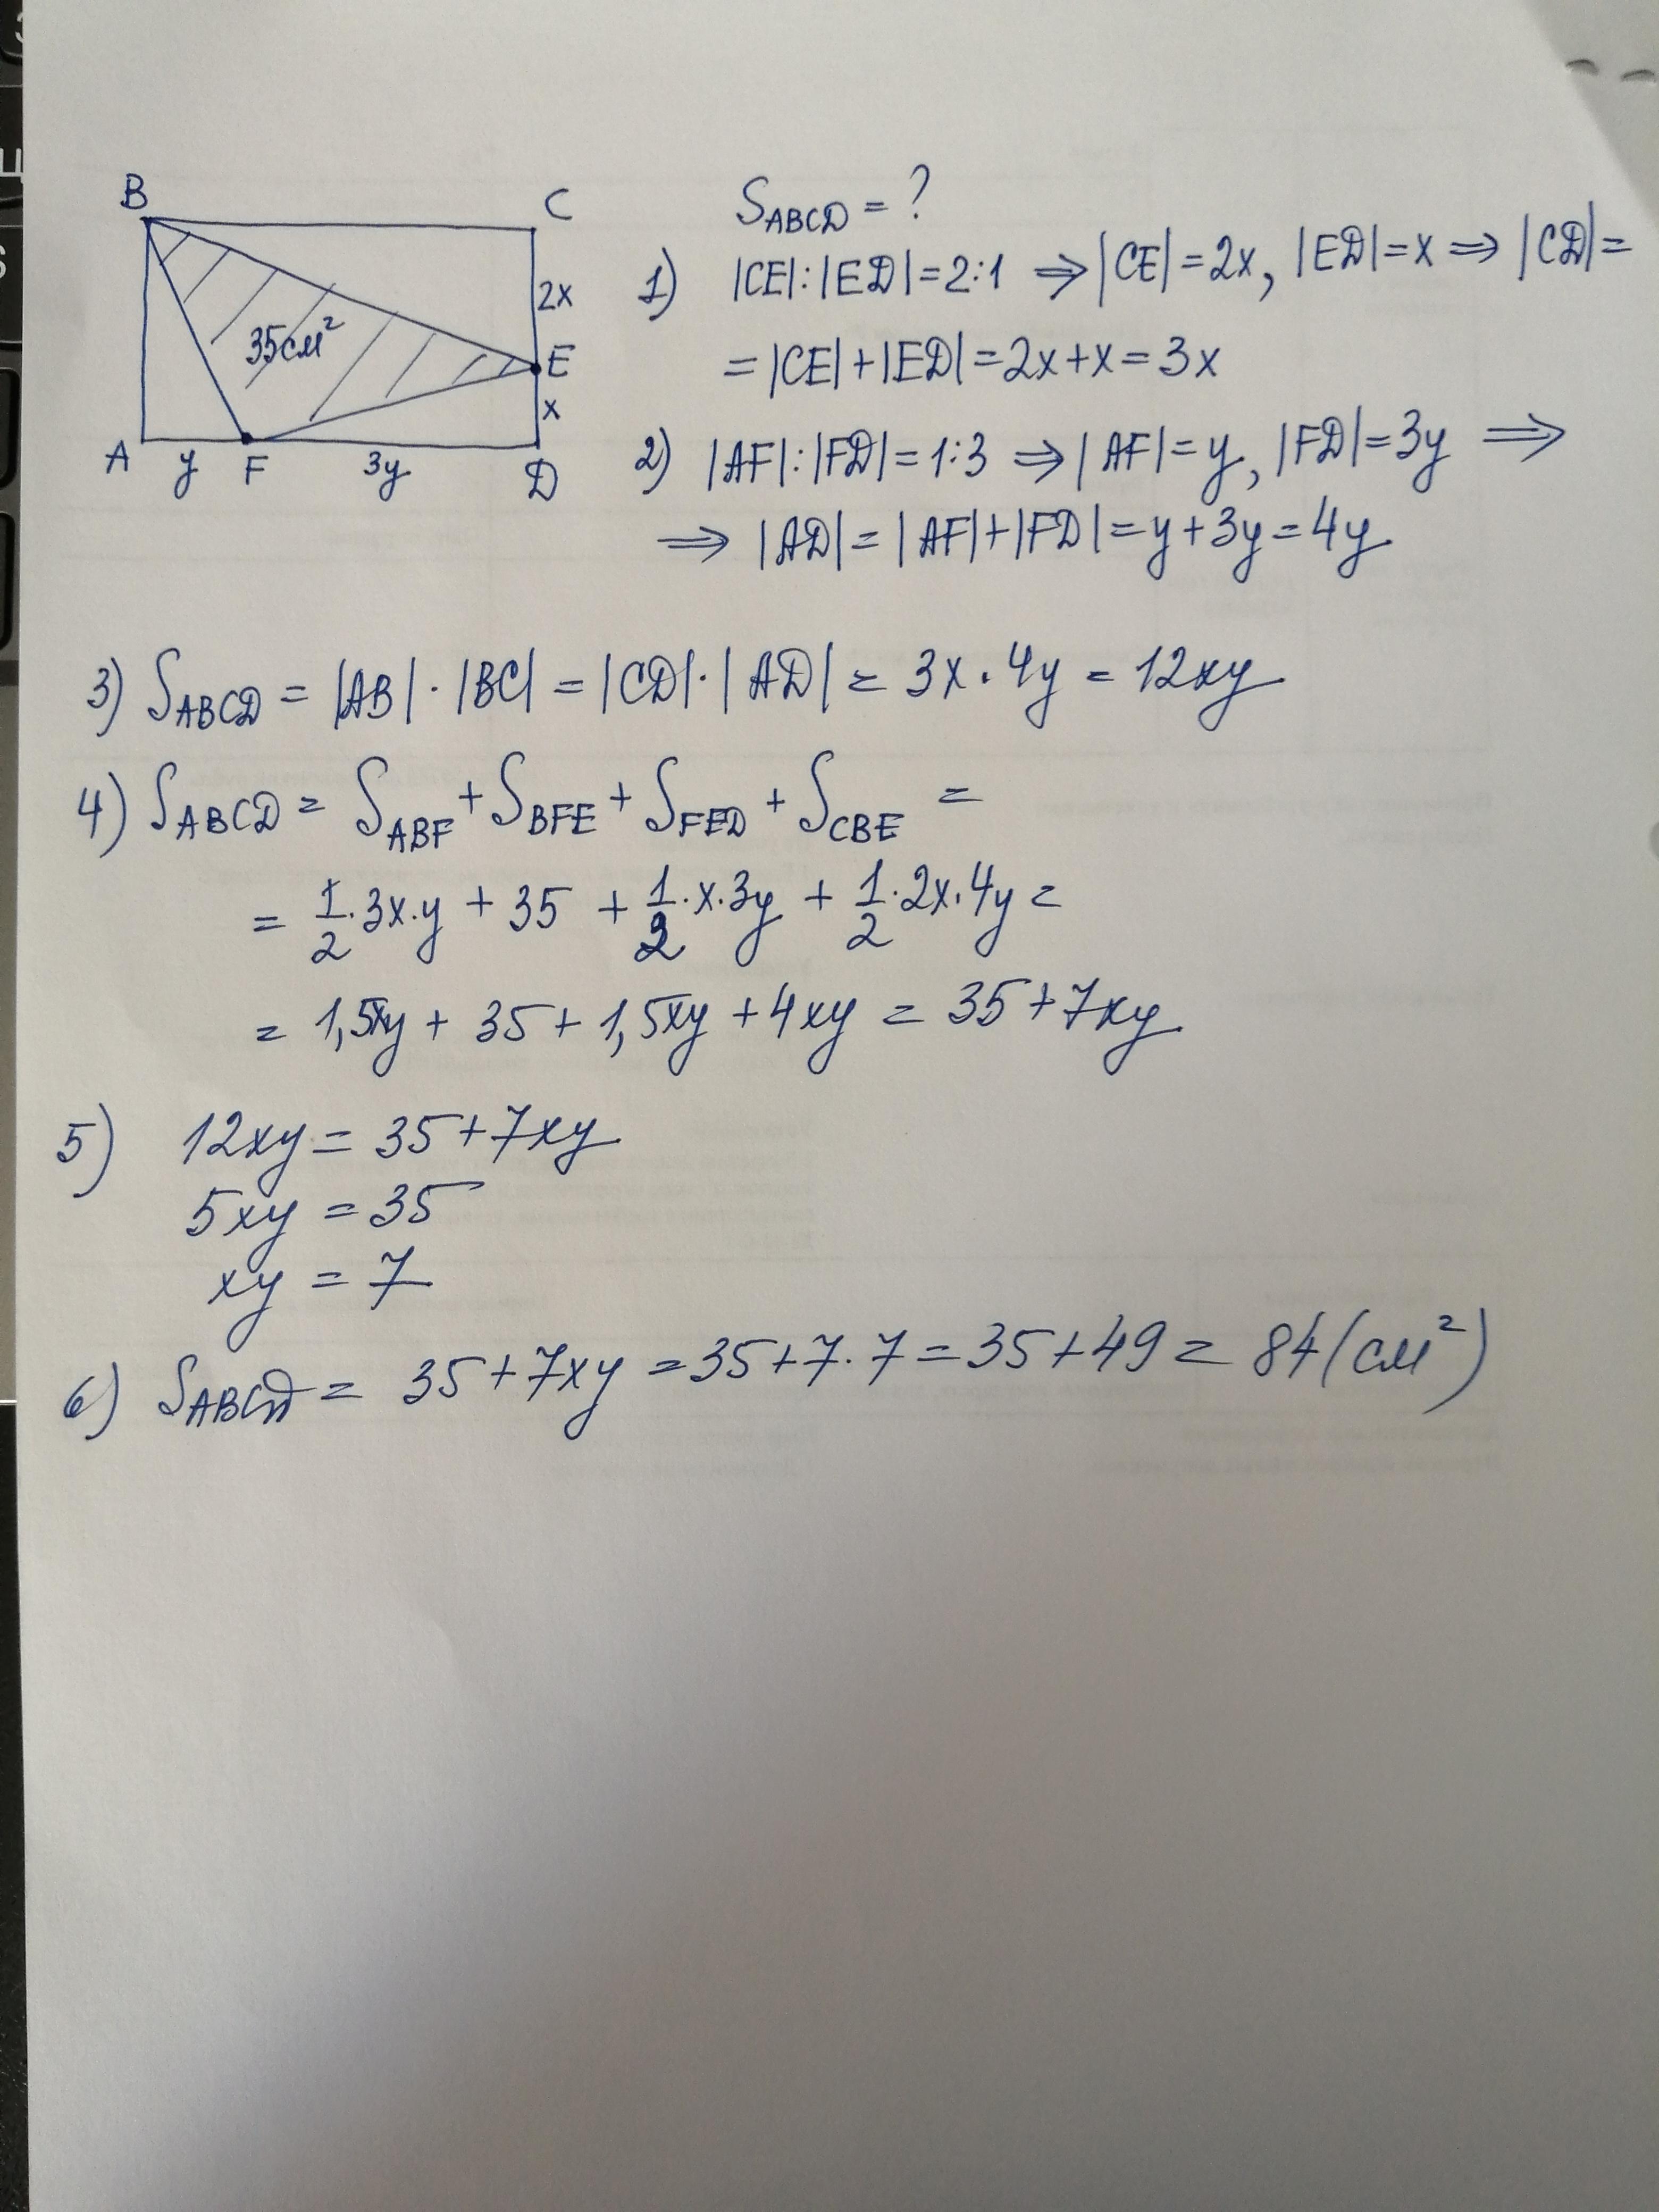 B
C
2x
35см²
E
x
A
y
F
3y
D
S_ABCD = ?
1) |CE|:|ED|=2:1 ⇒ |CE|=2x, |ED|=x ⇒ |CD|=
=|CE|+|ED|=2x+x=3x
2) |AF|:|FD|=1:3 ⇒ |AF|=y, |FD|=3y ⇒
⇒ |AD|=|AF|+|FD|=y+3y=4y
3) S_ABCD = |AB|·|BC| = |CD|·|AD| = 3x·4y = 12xy
4) S_ABCD = S_ABF + S_BFE + S_FED + S_CBE =
= 1/2·3x·y + 35 + 1/2·x·3y + 1/2·2x·4y =
= 1,5xy + 35 + 1,5xy + 4xy = 35+7xy
5) 12xy = 35+7xy
5xy = 35
xy = 7
6) S_ABCD = 35+7xy = 35+7·7 = 35+49 = 84 (см²)